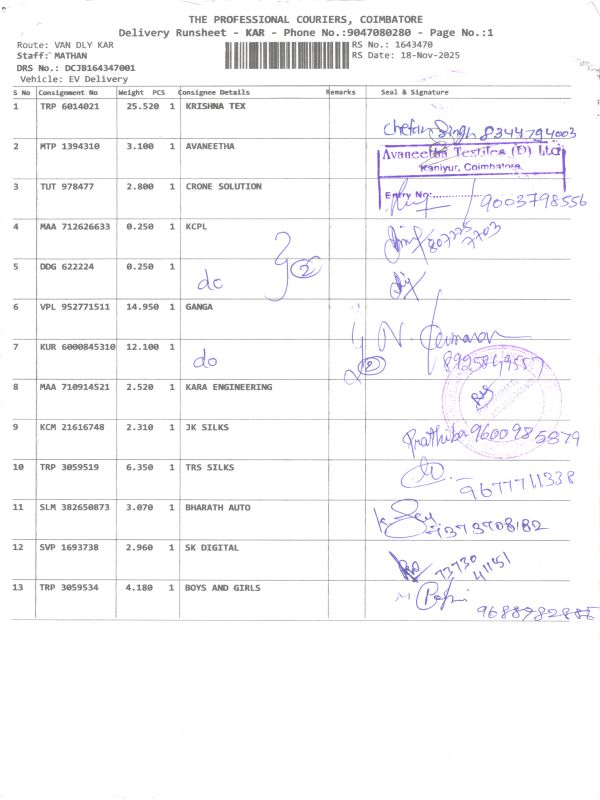 THE PROFESSIONAL COURIERS, COIMBATORE
Delivery Runsheet - KAR - Phone No.:9047080280 - Page No.:1
Route: VAN DLY KAR RS No.: 1643470
Staff: MATHAN RS Date: 18-Nov-2025
DRS No.: DCJB164347001
Vehicle: EV Delivery
S No Consignment No Weight PCS Consignee Details Remarks Seal & Signature
1 TRP 6014021 25.520 1 KRISHNA TEX
8344794003
2 MTP 1394310 3.100 1 AVANEETHA
Avaneetha Textiles (P) Ltd
Kaniyur, Coimbatore
3 TUT 978477 2.800 1 CRONE SOLUTION
Entry No:
9003798556
4 MAA 712626633 0.250 1 KCPL
5 DDG 622224 0.250 1
do 2
6 VPL 952771511 14.950 1 GANGA
7 KUR 6000845310 12.100 1
do 2
8 MAA 710914521 2.520 1 KARA ENGINEERING
9 KCM 21616748 2.310 1 JK SILKS
Prathiba 9600985879
10 TRP 3059519 6.350 1 TRS SILKS
9677711338
11 SLM 382650873 3.070 1 BHARATH AUTO
7373708182
12 SVP 1693738 2.960 1 SK DIGITAL
73730
41151
13 TRP 3059534 4.180 1 BOYS AND GIRLS